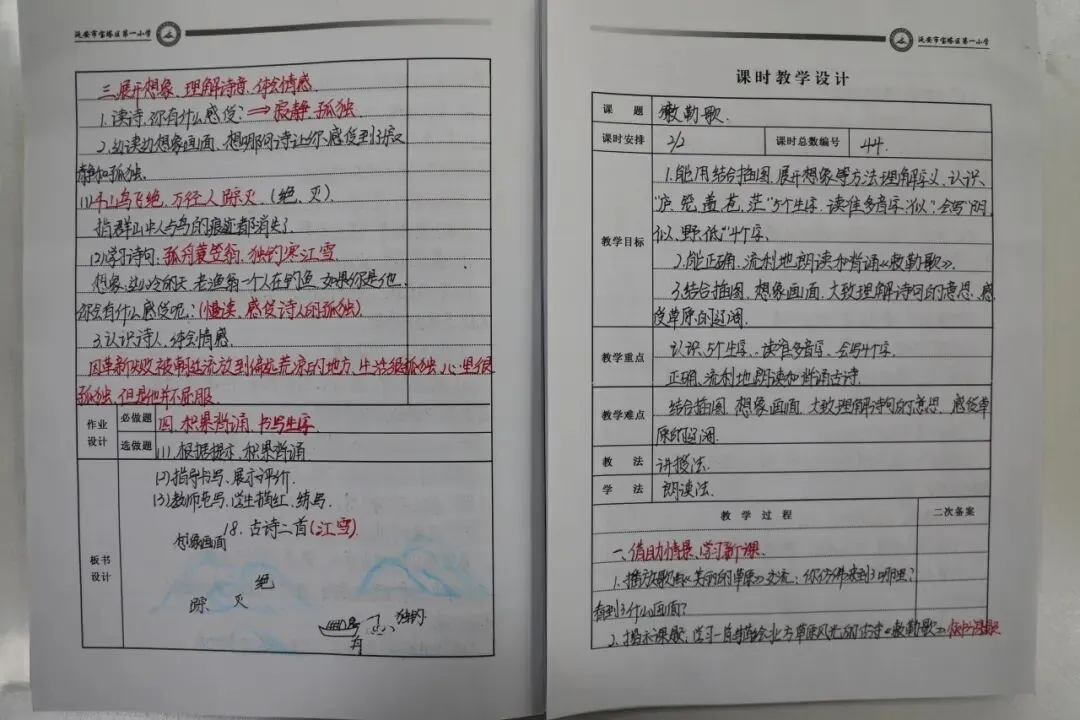 延安市宝塔区第一小学
三、展开想象、理解诗意、体会情感
1.读诗,你有什么感受?⇒寂静、孤独
2.边读边想象画面、想哪句诗让你感受到了寂
静和孤独。
(1)千山鸟飞绝,万径人踪灭。(绝、灭)
指群山中人与鸟的痕迹都消失了
(2)学习诗句:孤舟蓑笠翁,独钓寒江雪。
想象,这么冷的天,老渔翁一个人在钓鱼,如果你是他,
你会有什么感受呢?(慢读、感受诗人的孤独)
3.认识诗人,体会情感。
因革新失败被朝廷流放到偏远荒凉的地方,生活很孤独,心里很
孤独,但是他并不屈服
作业设计
必做题
四、积累背诵、书写生字
选做题
(1)、根据提示、积累背诵
(2)指导书写、展示评价.
(3)教师范写,学生描红、练写.
板书设计
18.古诗二首(江雪)
想象画面
绝
踪、灭
独钓
舟
延安市宝塔区第一小学
课时教学设计
课题
敕勒歌.
课时安排
2/2
课时总数编号
44.
教学目标
1.能用结合插图、展开想象等方法理解字义、认识
"庐、笼、盖、苍、茫"5个生字,读准多音字"似",会写"阴、
似、野、低"4个字、
2.能正确、流利地朗读和背诵《敕勒歌》.
3.结合插图、想象画面,大致理解诗句的意思、感
受草原的辽阔.
教学重点
认识5个生字、读准多音字、会写4个字.
正确、流利地朗读和背诵古诗.
教学难点
结合插图、想象画面、大致理解诗句的意思、感受草
原的辽阔.
教法
讲授法.
学法
朗读法.
教学过程
二次备案
一、借助情景、学习新课.
1.播放歌曲《美丽的草原》交流:你仿佛来到了哪里?
看到了什么画面?
2.揭示课题,学习一首描绘北方草原风光的古诗《敕勒歌》板书课题